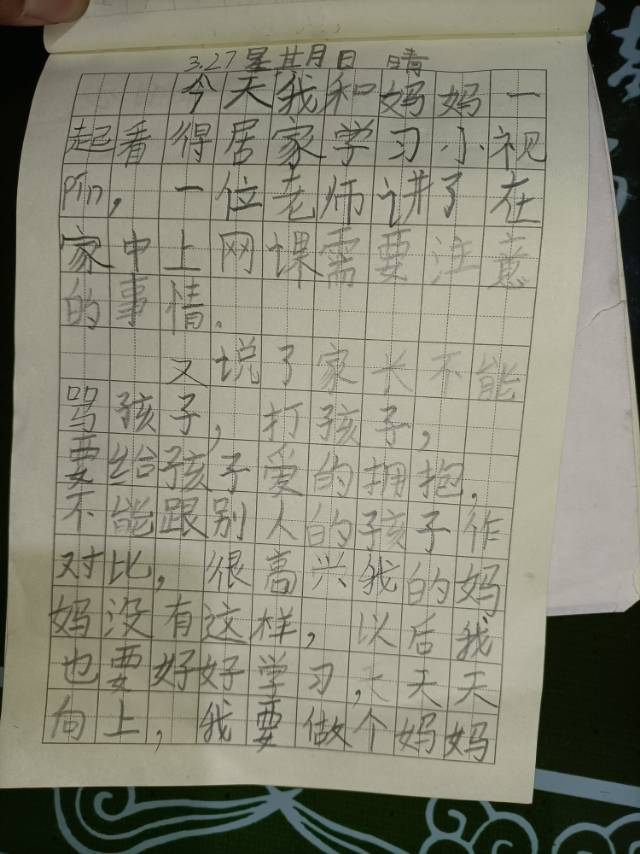 3.27 星其月日 晴
今天我和妈妈一
起看得居家学习小视
pín，一位老师讲了在
家中上网课需要注意
的事情.
又说了家长不能
骂孩子，打孩子，
要给孩子爱的拥抱，
不能跟别人的孩子作
对比，很高兴我的妈
妈没有这样，以后我
也要好好学习，天天天
向上，我要做个妈妈